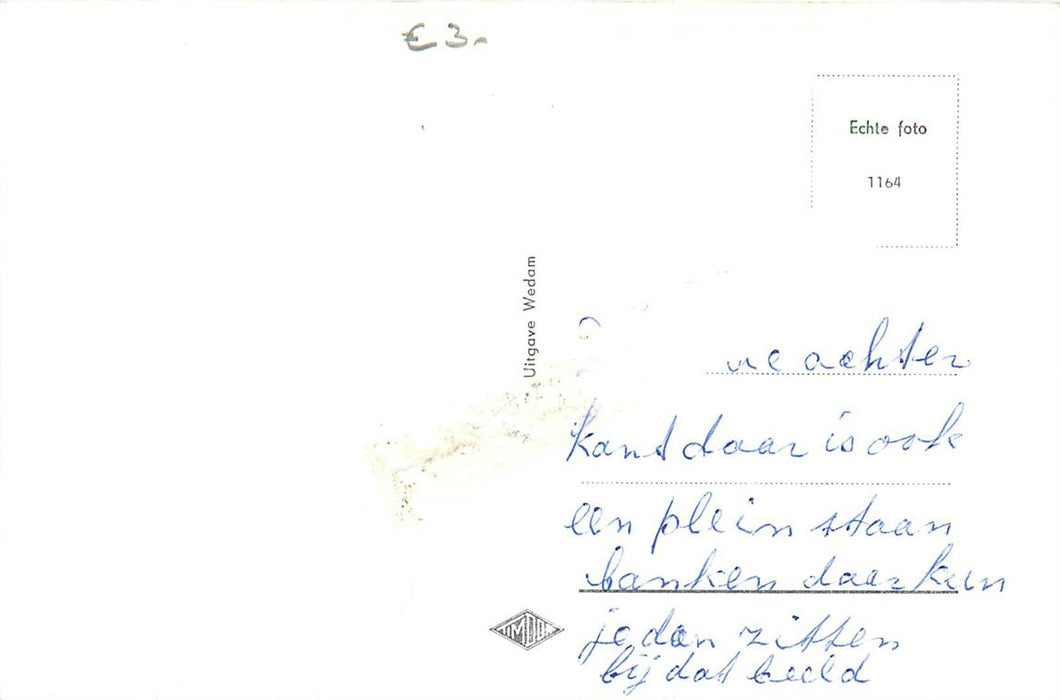 € 3-
Echte foto
1164
Uitgave Wedam
achter
kant daar is ook
een plein staan
banken daar kun
je dan zitten
bij dat beeld